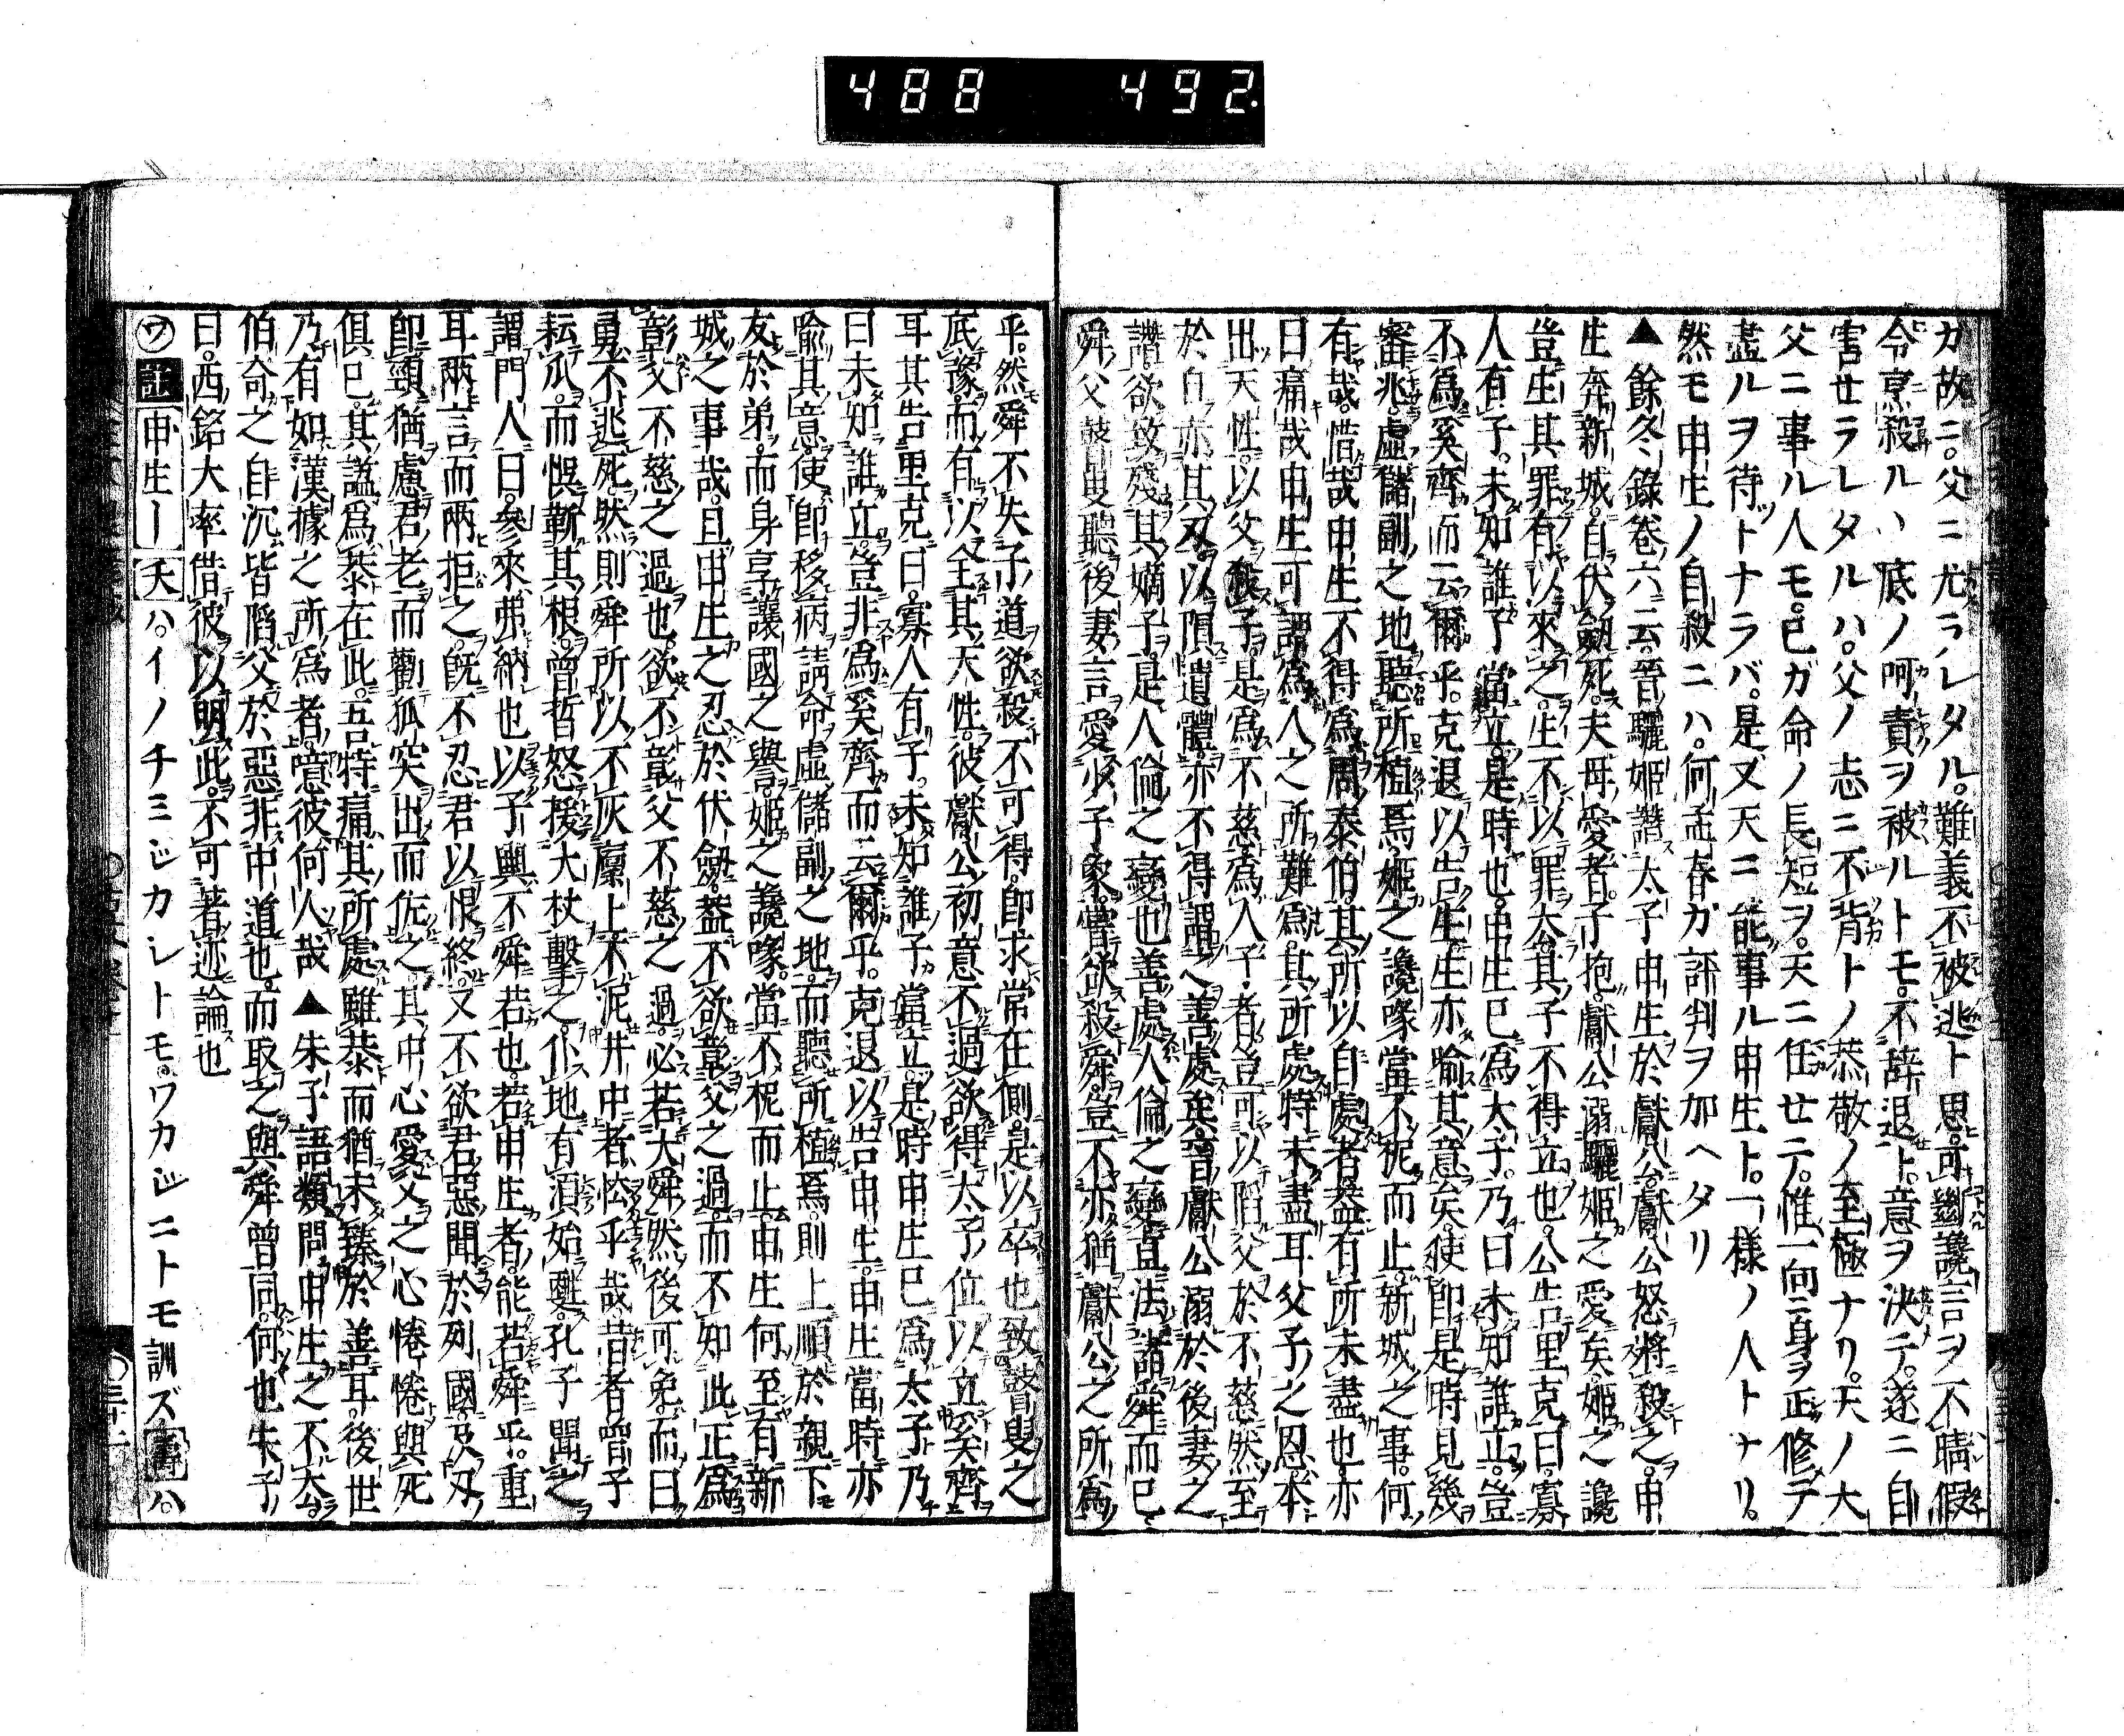 488 492
カ故ニ。父ニ尤ラレタル。難義不被逃ト思。可幽讒言ヲ不晴假
令烹殺ルヽ底ノ呵責ヲ被ルトモ。不辞退ト。意ヲ決テ。遂ニ自
害セラレタルハ。父ノ志ニ不背トノ恭敬ノ至極ナリ。天ノ大
父ニ事ル人モ。己ガ命ノ長短ヲ。天ニ任セテ。惟一向ニ身ヲ正修テ
盡ルヲ待トナラバ。是又天ニ能事ル申生ト。一樣ノ人トナリ。
然モ申生ノ自殺ニハ。何孟春ガ評判ヲ加ヘタリ
▲餘冬録卷六云。晉驪姬譖太子申生於獻公。獻公怒將殺之。申
生奔新城。自伏劔死。夫母愛者子抱。獻公溺驪姬之愛矣。姬之讒
豈生其罪有以來之。生不以罪大。其子不得立也。公告里克曰。寡
人有子。未知誰了當立。是時也。申生已爲太子。乃曰未知誰立。豈
不爲奚齊而云爾乎。克退以告生。生亦喻其意矣。使卽是時見幾
審兆。虛儲副之地。聽所植焉。姬之讒喙當不柅而止。新城之事。何
有哉。惜哉申生不得爲周泰伯。其所以自處者。蓋有所未盡也。亦
曰痛哉申生可謂爲人之所難爲。其所處特未盡耳。父子之恩本
出天性。以父殺子。是爲不慈。爲人子者。豈可以陷父於不慈。然至
於自亦其刄。以隕遺體。亦不得謂之善處矣。晉獻公溺於後妻之
譖。欲致殘其嫡子。是人倫之變也。善處人倫之變。宜法諸舜而已
舜父瞽叟聽後妻言。愛少子象。嘗欲殺舜。豈不亦猶獻公之所爲
乎。然舜不失子道。欲殺不可得。卽求常在側。是以卒也致瞽叟之
底豫。而有以全其天性。彼獻公初意。不過欲得太子位以立奚齊
耳。其告里克曰。寡人有子。未知誰子當立。是時申生已爲太子。乃
曰未知誰立。豈非爲奚齊而云爾乎。克退以告申生。申生當時亦
喻其意。使卽移病請命虛儲副之地。而聽所植焉。則上順於親下
友於弟。而身享讓國之譽。姬之讒喙。當不柅而止。申生何至有新
城之事哉。且申生之忍於伏劔。蓋不欲彰父之過。而不知此正爲
彰父不慈之過也。欲不彰父不慈之過。必若大舜然後可免。而曰
勇不逃死。然則舜所以不灰廩上不泥井中者。怯乎哉。昔者曾子
耘瓜。而悞斬其根。曾晳怒援大杖擊之。仆地有頃始甦。孔子聞之
謂門人曰。參來弗納也。以子輿不舜若也。若申生者。能若舜乎。重
耳兩言而兩拒之。旣不忍君以恨終。又不欲君惡聞於列國。及刄
卽頸猶慮君老。而勸狐突出而佐之。其中心愛父之心惓惓與死
俱已。其諡爲恭在此。吾特痛其所處雖恭而猶未臻於善耳。後世
乃有如漢據之所爲者。噫彼何人哉▲朱子語類問申生之不去。
伯奇之自沉。皆陷父於惡。非中道也。而取之與舜曾同。何也。朱子
曰。西銘大率借彼以明此。不可著迹論也
㋻註申生一 夭ハ。イノチミジカシトモ。ワカジニトモ訓ズ壽ハ。